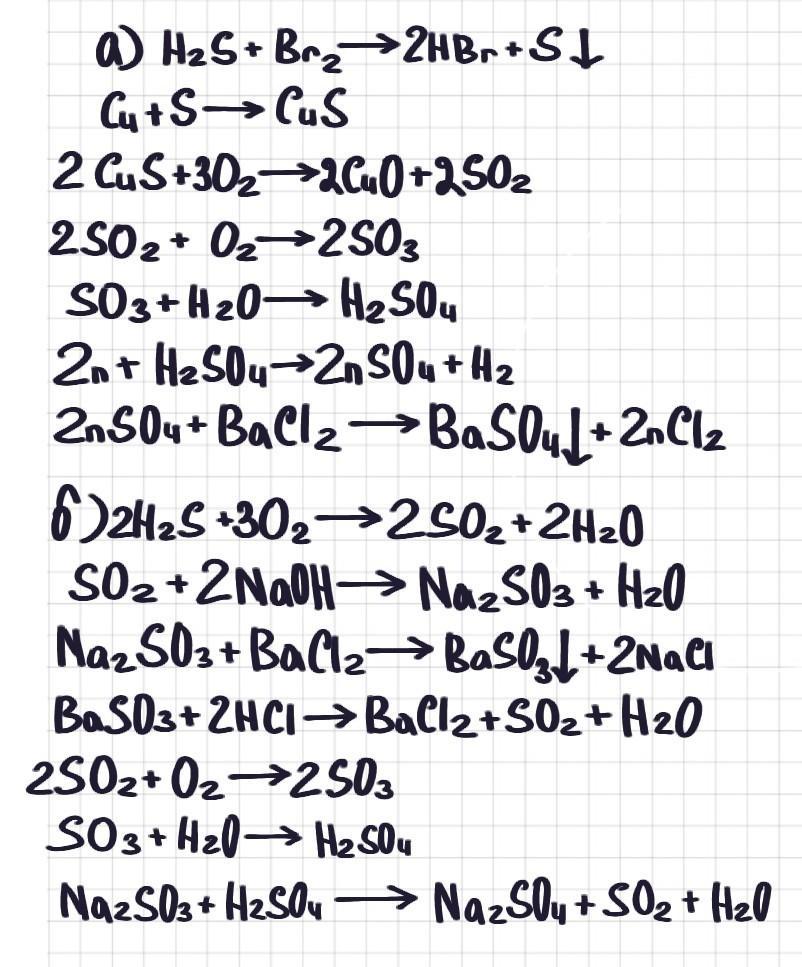 а) H₂S + Br₂ → 2HBr + S↓
Cu + S → CuS
2CuS + 3O₂ → 2CuO + 2SO₂
2SO₂ + O₂ → 2SO₃
SO₃ + H₂O → H₂SO₄
Zn + H₂SO₄ → ZnSO₄ + H₂
ZnSO₄ + BaCl₂ → BaSO₄↓ + ZnCl₂
б) 2H₂S + 3O₂ → 2SO₂ + 2H₂O
SO₂ + 2NaOH → Na₂SO₃ + H₂O
Na₂SO₃ + BaCl₂ → BaSO₃↓ + 2NaCl
BaSO₃ + 2HCl → BaCl₂ + SO₂ + H₂O
2SO₂ + O₂ → 2SO₃
SO₃ + H₂O → H₂SO₄
Na₂SO₃ + H₂SO₄ → Na₂SO₄ + SO₂ + H₂O